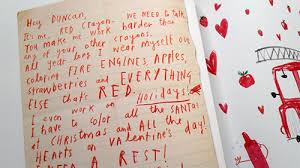 Hey DUNCAN,
It's me, RED Crayon. WE NEED to talk.
You make me work harder than
any of your other crayons.
All year long I wear myself out
coloring FIRE ENGINES, Apples,
Strawberries and EVERYTHING
ELSE that's RED.
I even work on Holidays!
I have to color all the SANTAS
at CHRISTMAS and ALL the
HEARTS on VALENTINE'S day!
A REST!